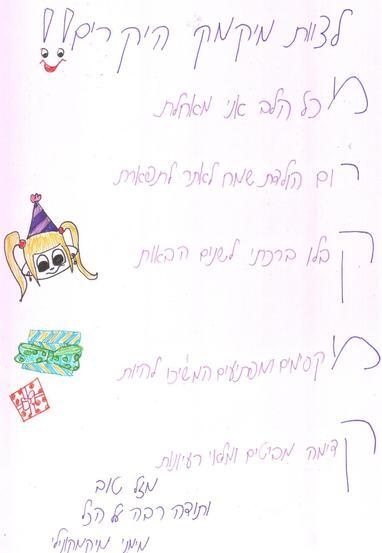 לצוות מיקמק היקרים!!
מכל הלב אני מאחלת
יום הולדת שמח לאתר לתפארת
קבלו ברכתי לשנים הבאות
מקסימים ומפתיעים המשיכו להיות
קדימה מביטים ומלאי רעיונות
מזל טוב
ותודה רבה על הכל